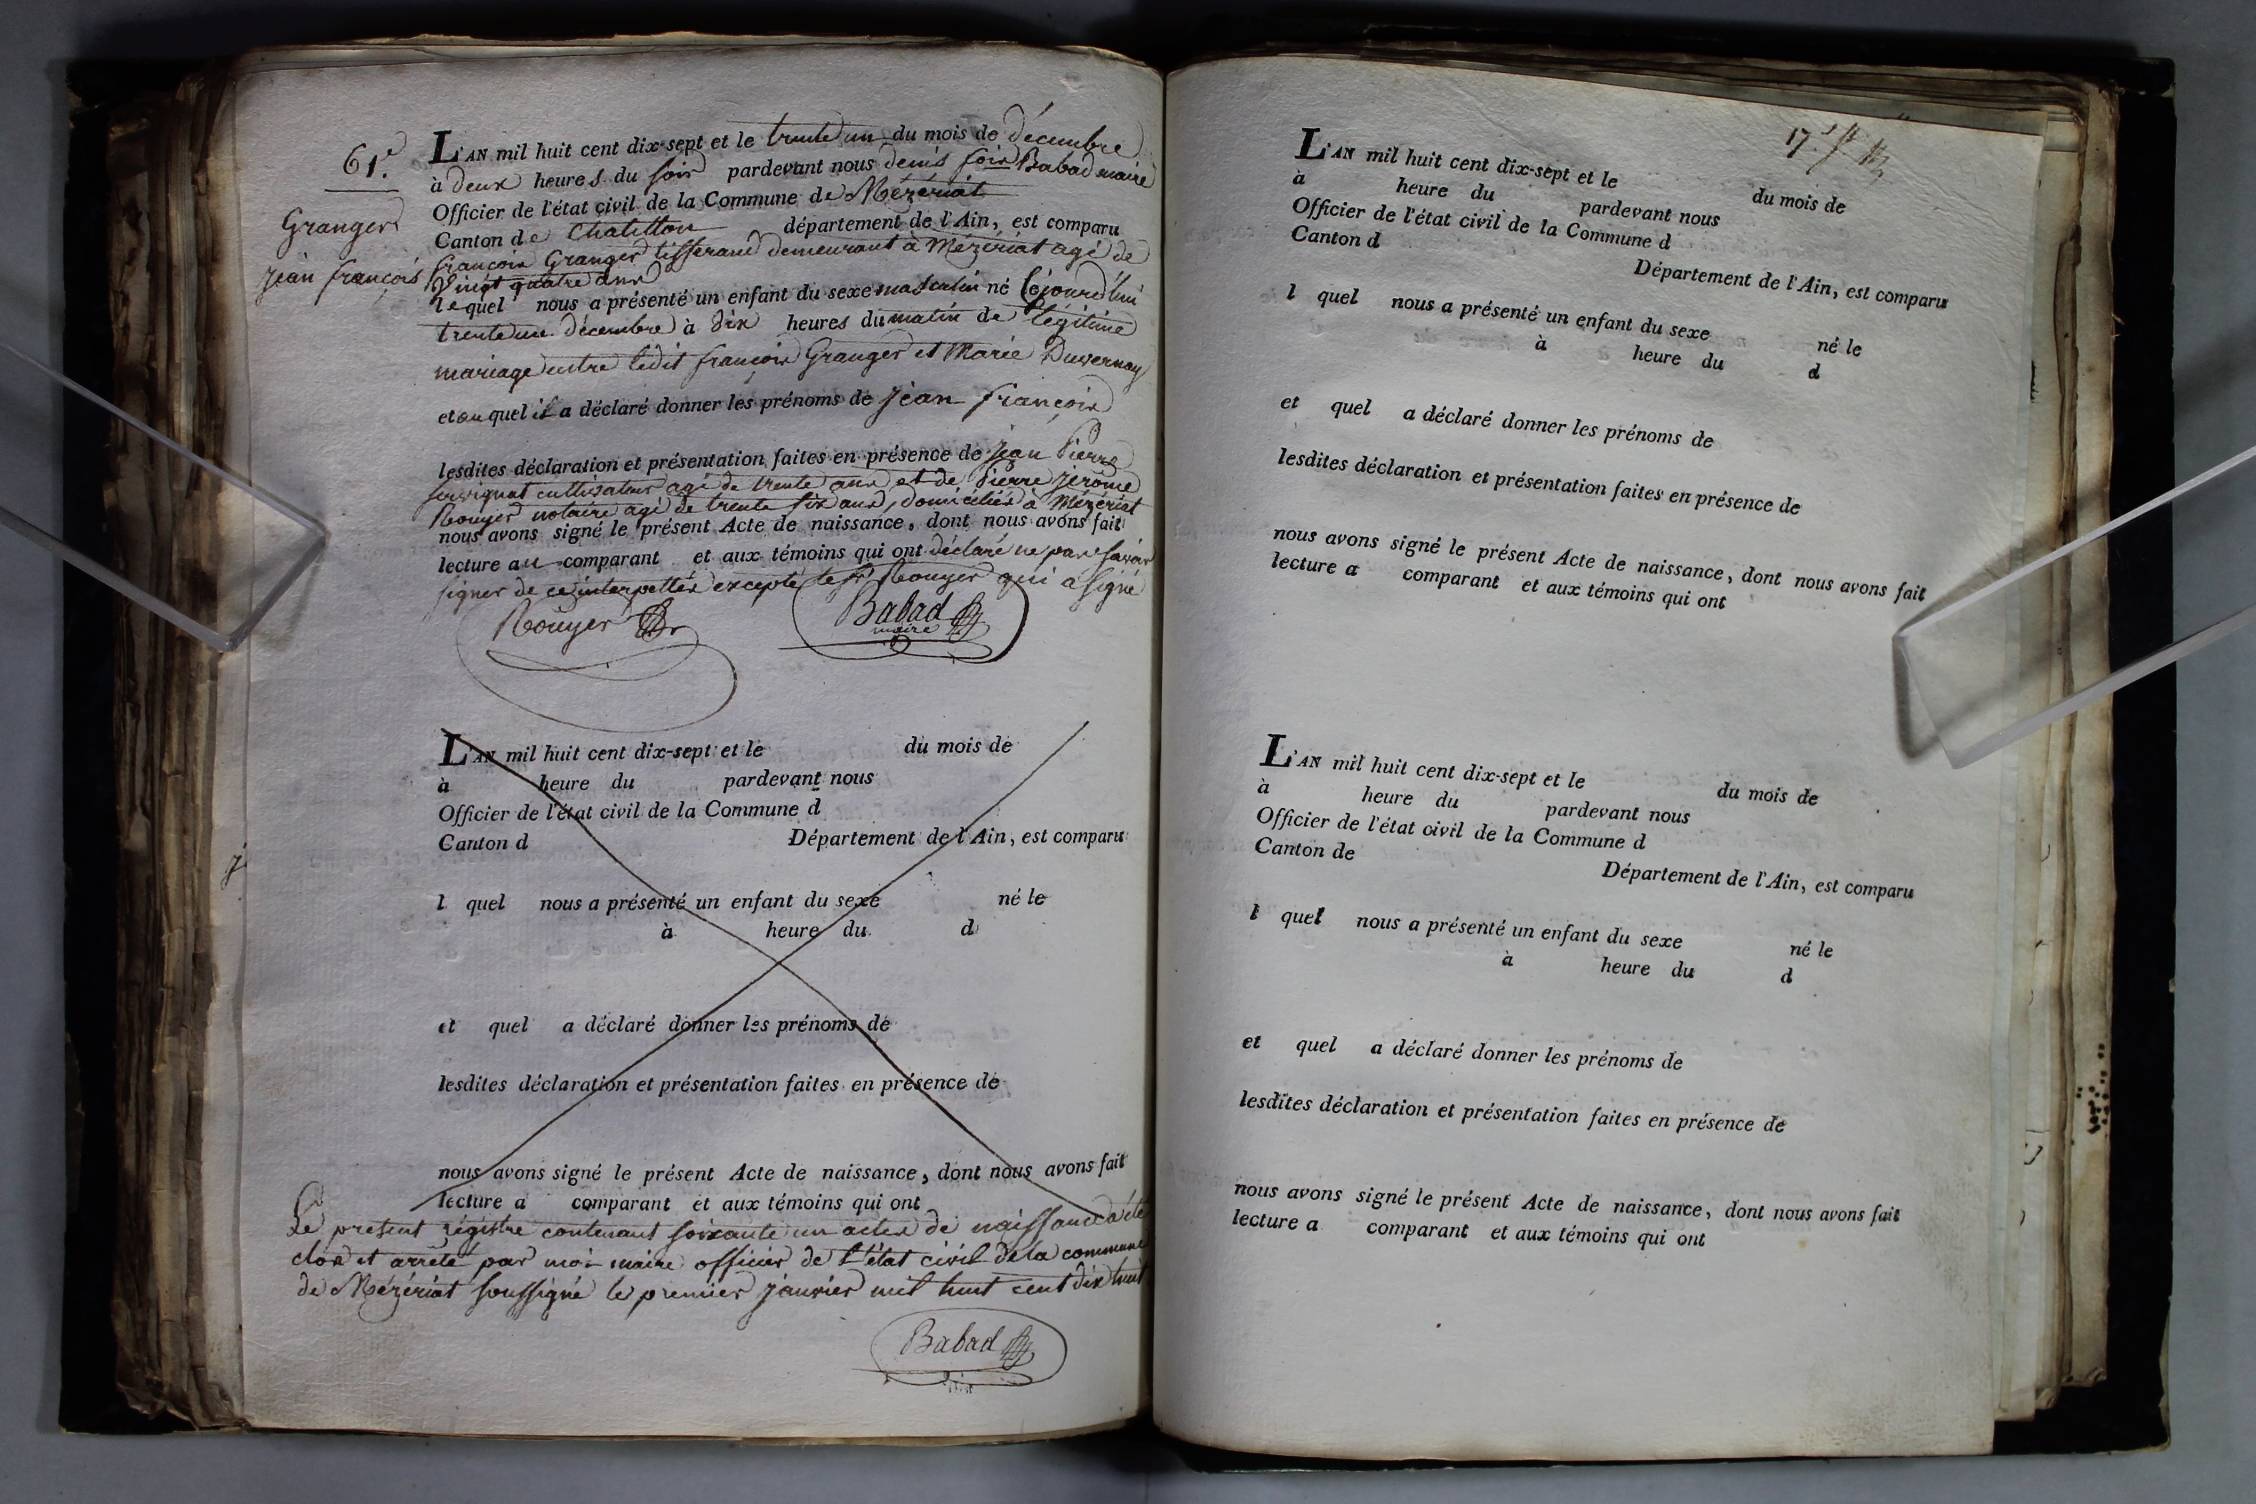 61.e
Granger
jean françois
L'AN mil huit cent dix-sept et le trente un du mois de décembre
à deux heures du soir pardevant nous denis foix Babad maire
Officier de l'état civil de la Commune de Mézériat
Canton de Chatillon département de l'Ain, est comparu
françois Granger tisserand demeurant à Mézériat agé de
Vingt quatre ans
lequel nous a présenté un enfant du sexe masculin né Cejourd'hui
trente un décembre à dix heures du matin de légitime
mariage entre ledit françois Granger et Marie Duvernay
et au quel il a déclaré donner les prénoms de jean françois
lesdites déclaration et présentation faites en présence de jean Pierre
cultivateur agé de trente ans et de Pierre jerôme
Rouyer notaire agé de trente six ans, domiciliés à Mézériat
nous avons signé le présent Acte de naissance, dont nous avons fait
lecture au comparant et aux témoins qui ont déclaré ne pas savoir
signer de ce interpellés excepté le sr Rouyer qui a signé
Rouyer
Babad
maire
L'AN mil huit cent dix-sept et le du mois de
à heure du pardevant nous
Officier de l'état civil de la Commune d
Canton d Département de l'Ain, est comparu
l quel nous a présenté un enfant du sexe né le
à heure du d
et quel a déclaré donner les prénoms de
lesdites déclaration et présentation faites en présence de
nous avons signé le présent Acte de naissance, dont nous avons fait
lecture a comparant et aux témoins qui ont
Le présent régistre contenant soixante un actes de naissance a été
clos et arrêté par moi maire officier de l'état civil de la commune
de Mézériat soussigné le premier janvier mil huit cent dix huit
Babad
17.e
L'AN mil huit cent dix-sept et le du mois de
à heure du pardevant nous
Officier de l'état civil de la Commune d
Canton d Département de l'Ain, est comparu
l quel nous a présenté un enfant du sexe né le
à heure du d
et quel a déclaré donner les prénoms de
lesdites déclaration et présentation faites en présence de
nous avons signé le présent Acte de naissance, dont nous avons fait
lecture a comparant et aux témoins qui ont
L'AN mil huit cent dix-sept et le du mois de
à heure du pardevant nous
Officier de l'état civil de la Commune d
Canton de Département de l'Ain, est comparu
l quel nous a présenté un enfant du sexe né le
à heure du d
et quel a déclaré donner les prénoms de
lesdites déclaration et présentation faites en présence de
nous avons signé le présent Acte de naissance, dont nous avons fait
lecture a comparant et aux témoins qui ont